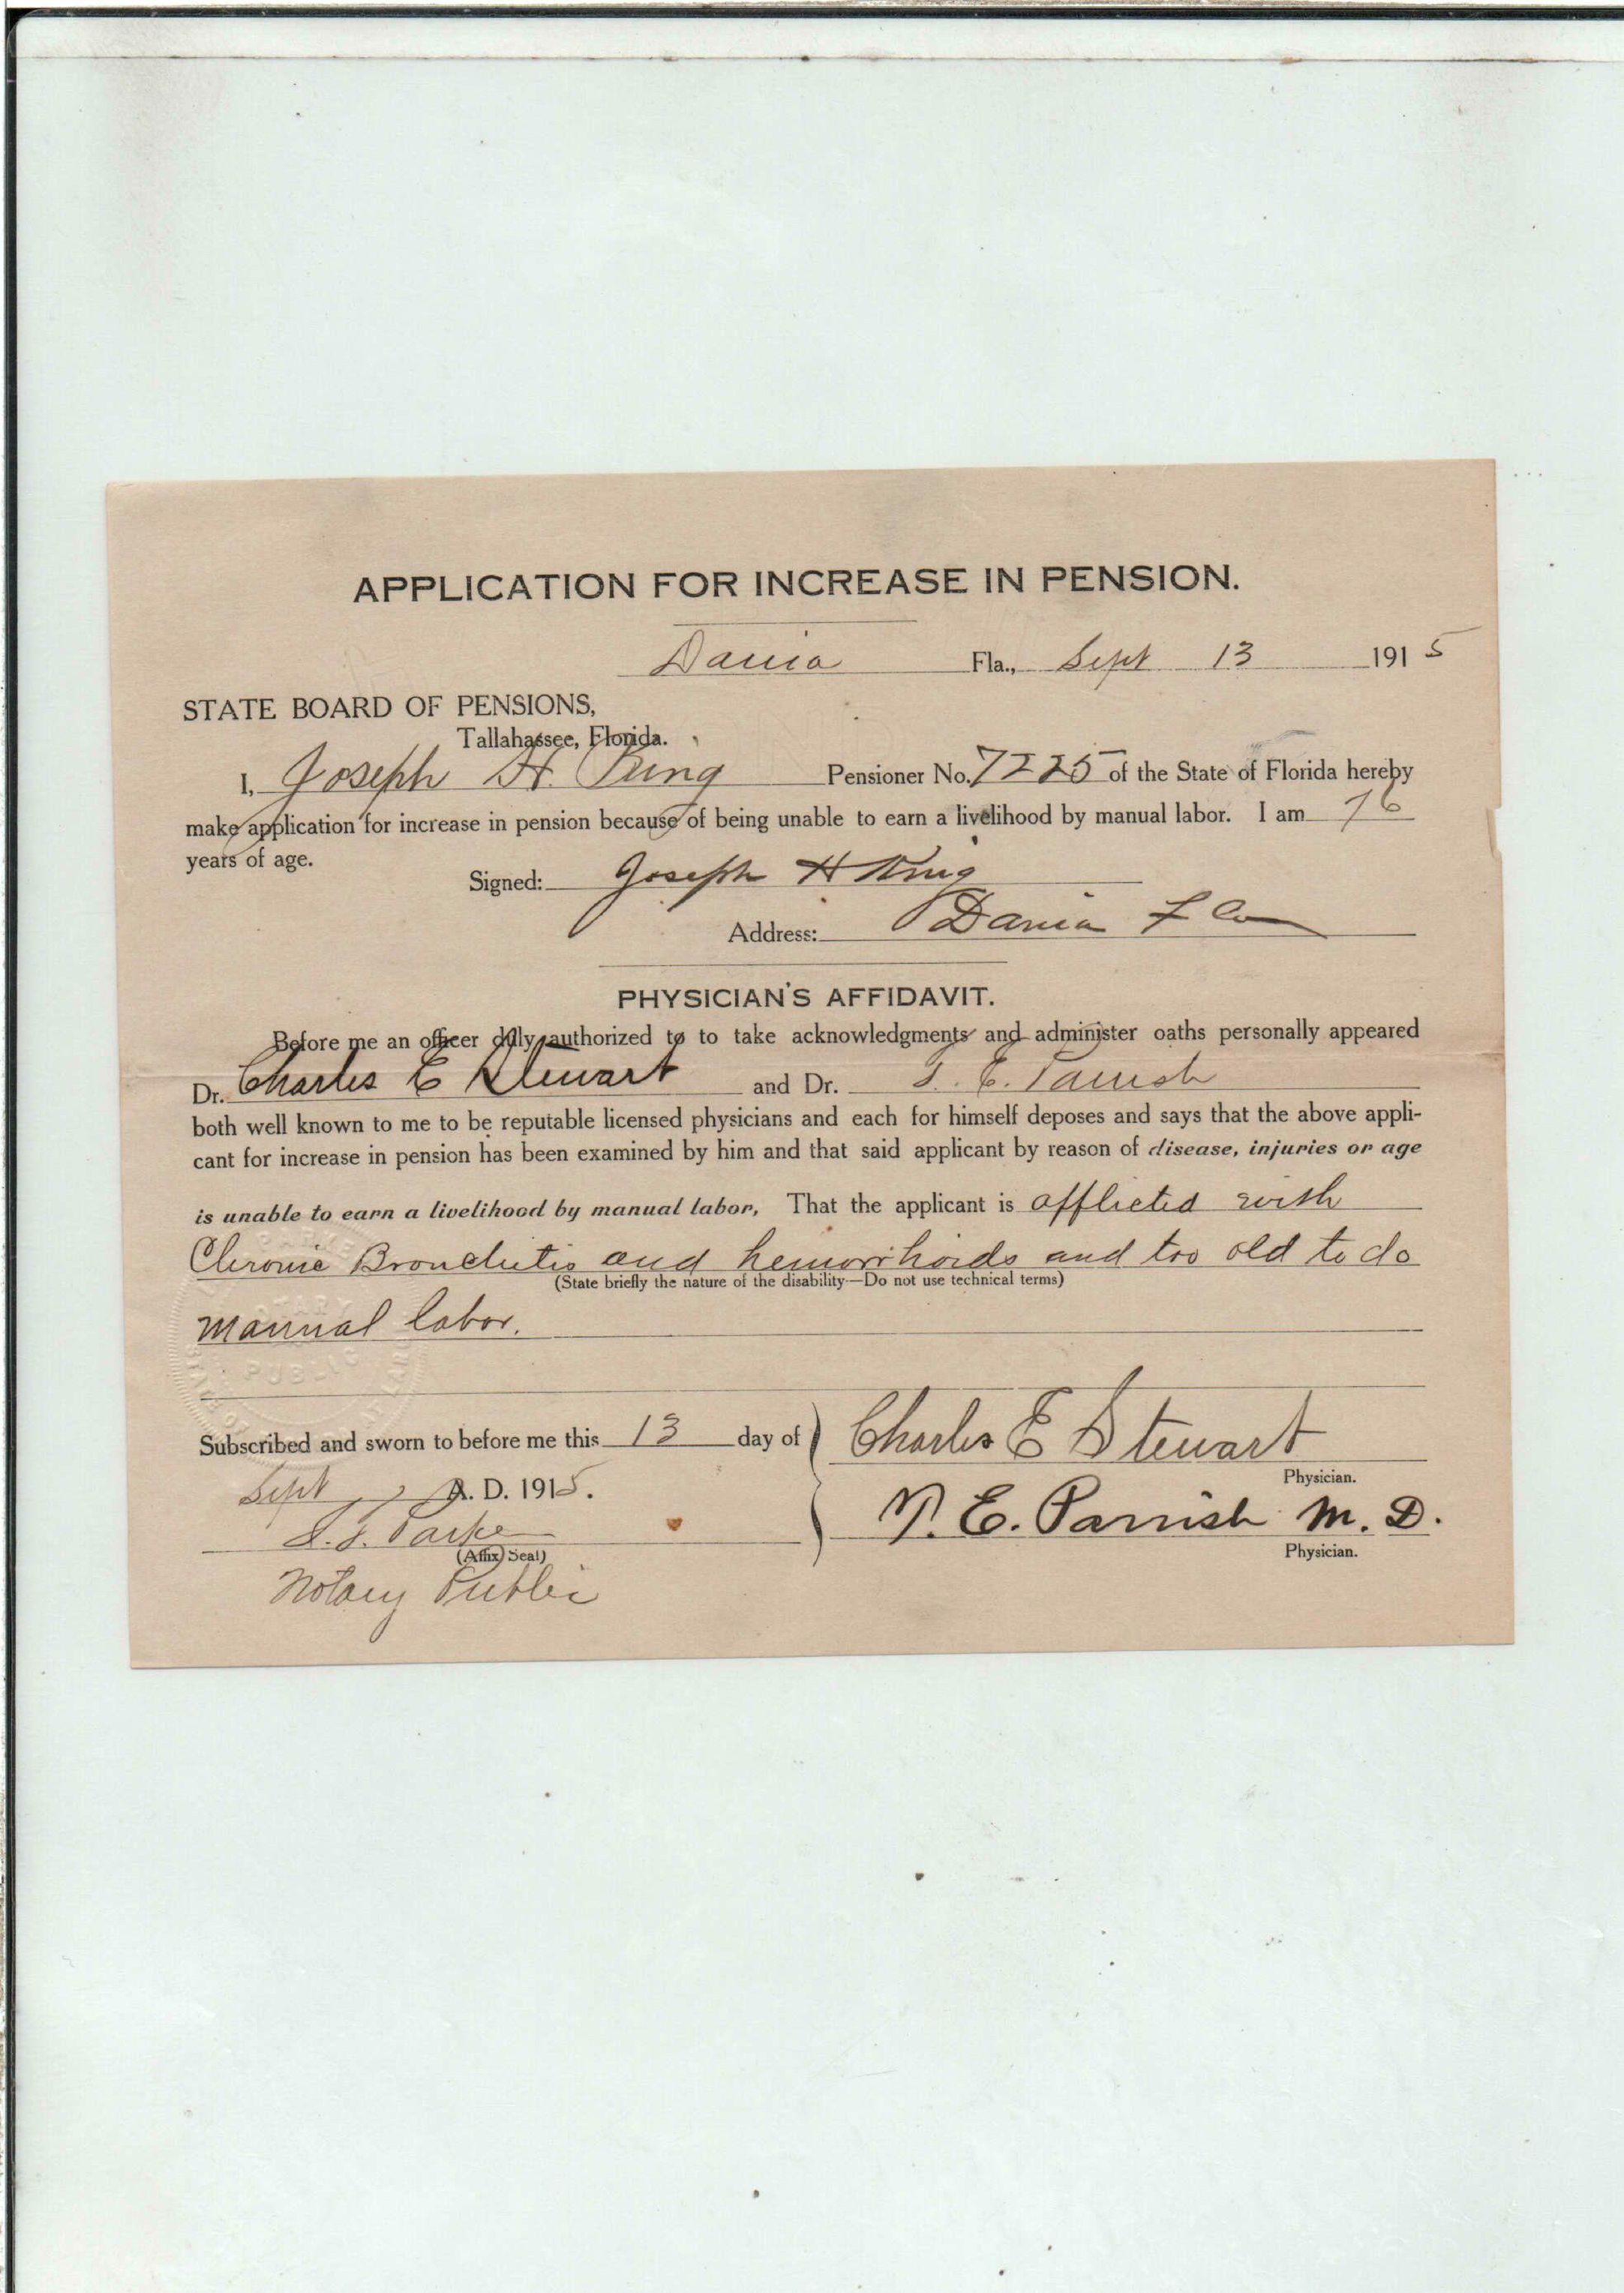 APPLICATION FOR INCREASE IN PENSION.
Dania Fla., Sept 13 1915
STATE BOARD OF PENSIONS,
Tallahassee, Florida.
I, Joseph H. King Pensioner No. 7225 of the State of Florida hereby
make application for increase in pension because of being unable to earn a livelihood by manual labor. I am 76
years of age.
Signed: Joseph H King
Address: Dania Fla
PHYSICIAN'S AFFIDAVIT.
Before me an officer duly authorized to to take acknowledgments and administer oaths personally appeared
Dr. Charles E Stewart and Dr. T. E. Parrish
both well known to me to be reputable licensed physicians and each for himself deposes and says that the above appli-
cant for increase in pension has been examined by him and that said applicant by reason of disease, injuries or age
is unable to earn a livelihood by manual labor, That the applicant is afflicted with
Chronic Bronchitis and hemorrhoids and too old to do
(State briefly the nature of the disability—Do not use technical terms)
manual labor.
NOTARY
PUBLIC
Subscribed and sworn to before me this 13 day of
Charles E Stewart
Physician.
Sept A. D. 1915.
E. Parrish M. D.
Physician.
Parke
(Affix Seal)
Notary Public